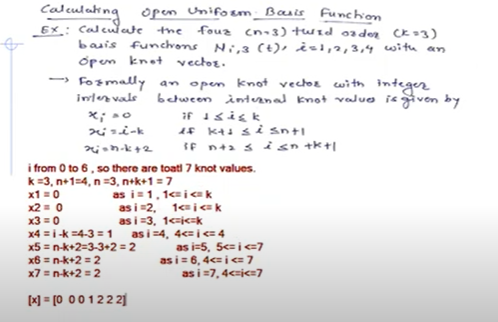 Calculating Open Uniform Basis Function
Ex: Calculate the four (n=3) third order (k=3)
basis functions Ni,3 (t), i=1,2,3,4 with an
open knot vector.
→ Formally an open knot vector with integer
intervals between internal knot values is given by
xi = 0 if 1 ≤ i ≤ k
xi = i-k if k+1 ≤ i ≤ n+1
xi = n-k+2 if n+2 ≤ i ≤ n+k+1
i from 0 to 6 , so there are toatl 7 knot values.
k =3, n+1=4, n =3, n+k+1 = 7
x1 = 0 as i = 1 , 1<=i <= k
x2 = 0 as i =2, 1<=i <= k
x3 = 0 as i =3, 1<=i<=k
x4 = i -k =4-3 = 1 as i =4, 4<= i <= 4
x5 = n-k+2 =3-3+2 = 2 as i=5, 5<= i <=7
x6 = n-k+2 = 2 as i = 6, 4<= i <= 7
x7 = n-k+2 = 2 as i =7, 4<=i<=7
[x] = [0 0 0 1 2 2 2]